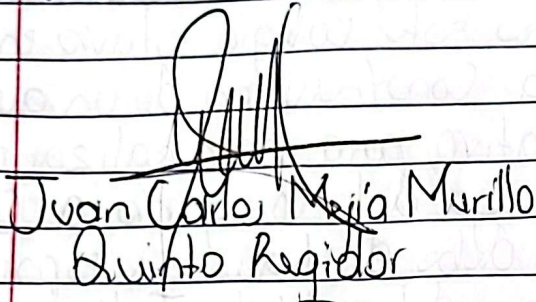 Juan Carlos Mejía Murillo
Quinto Regidor